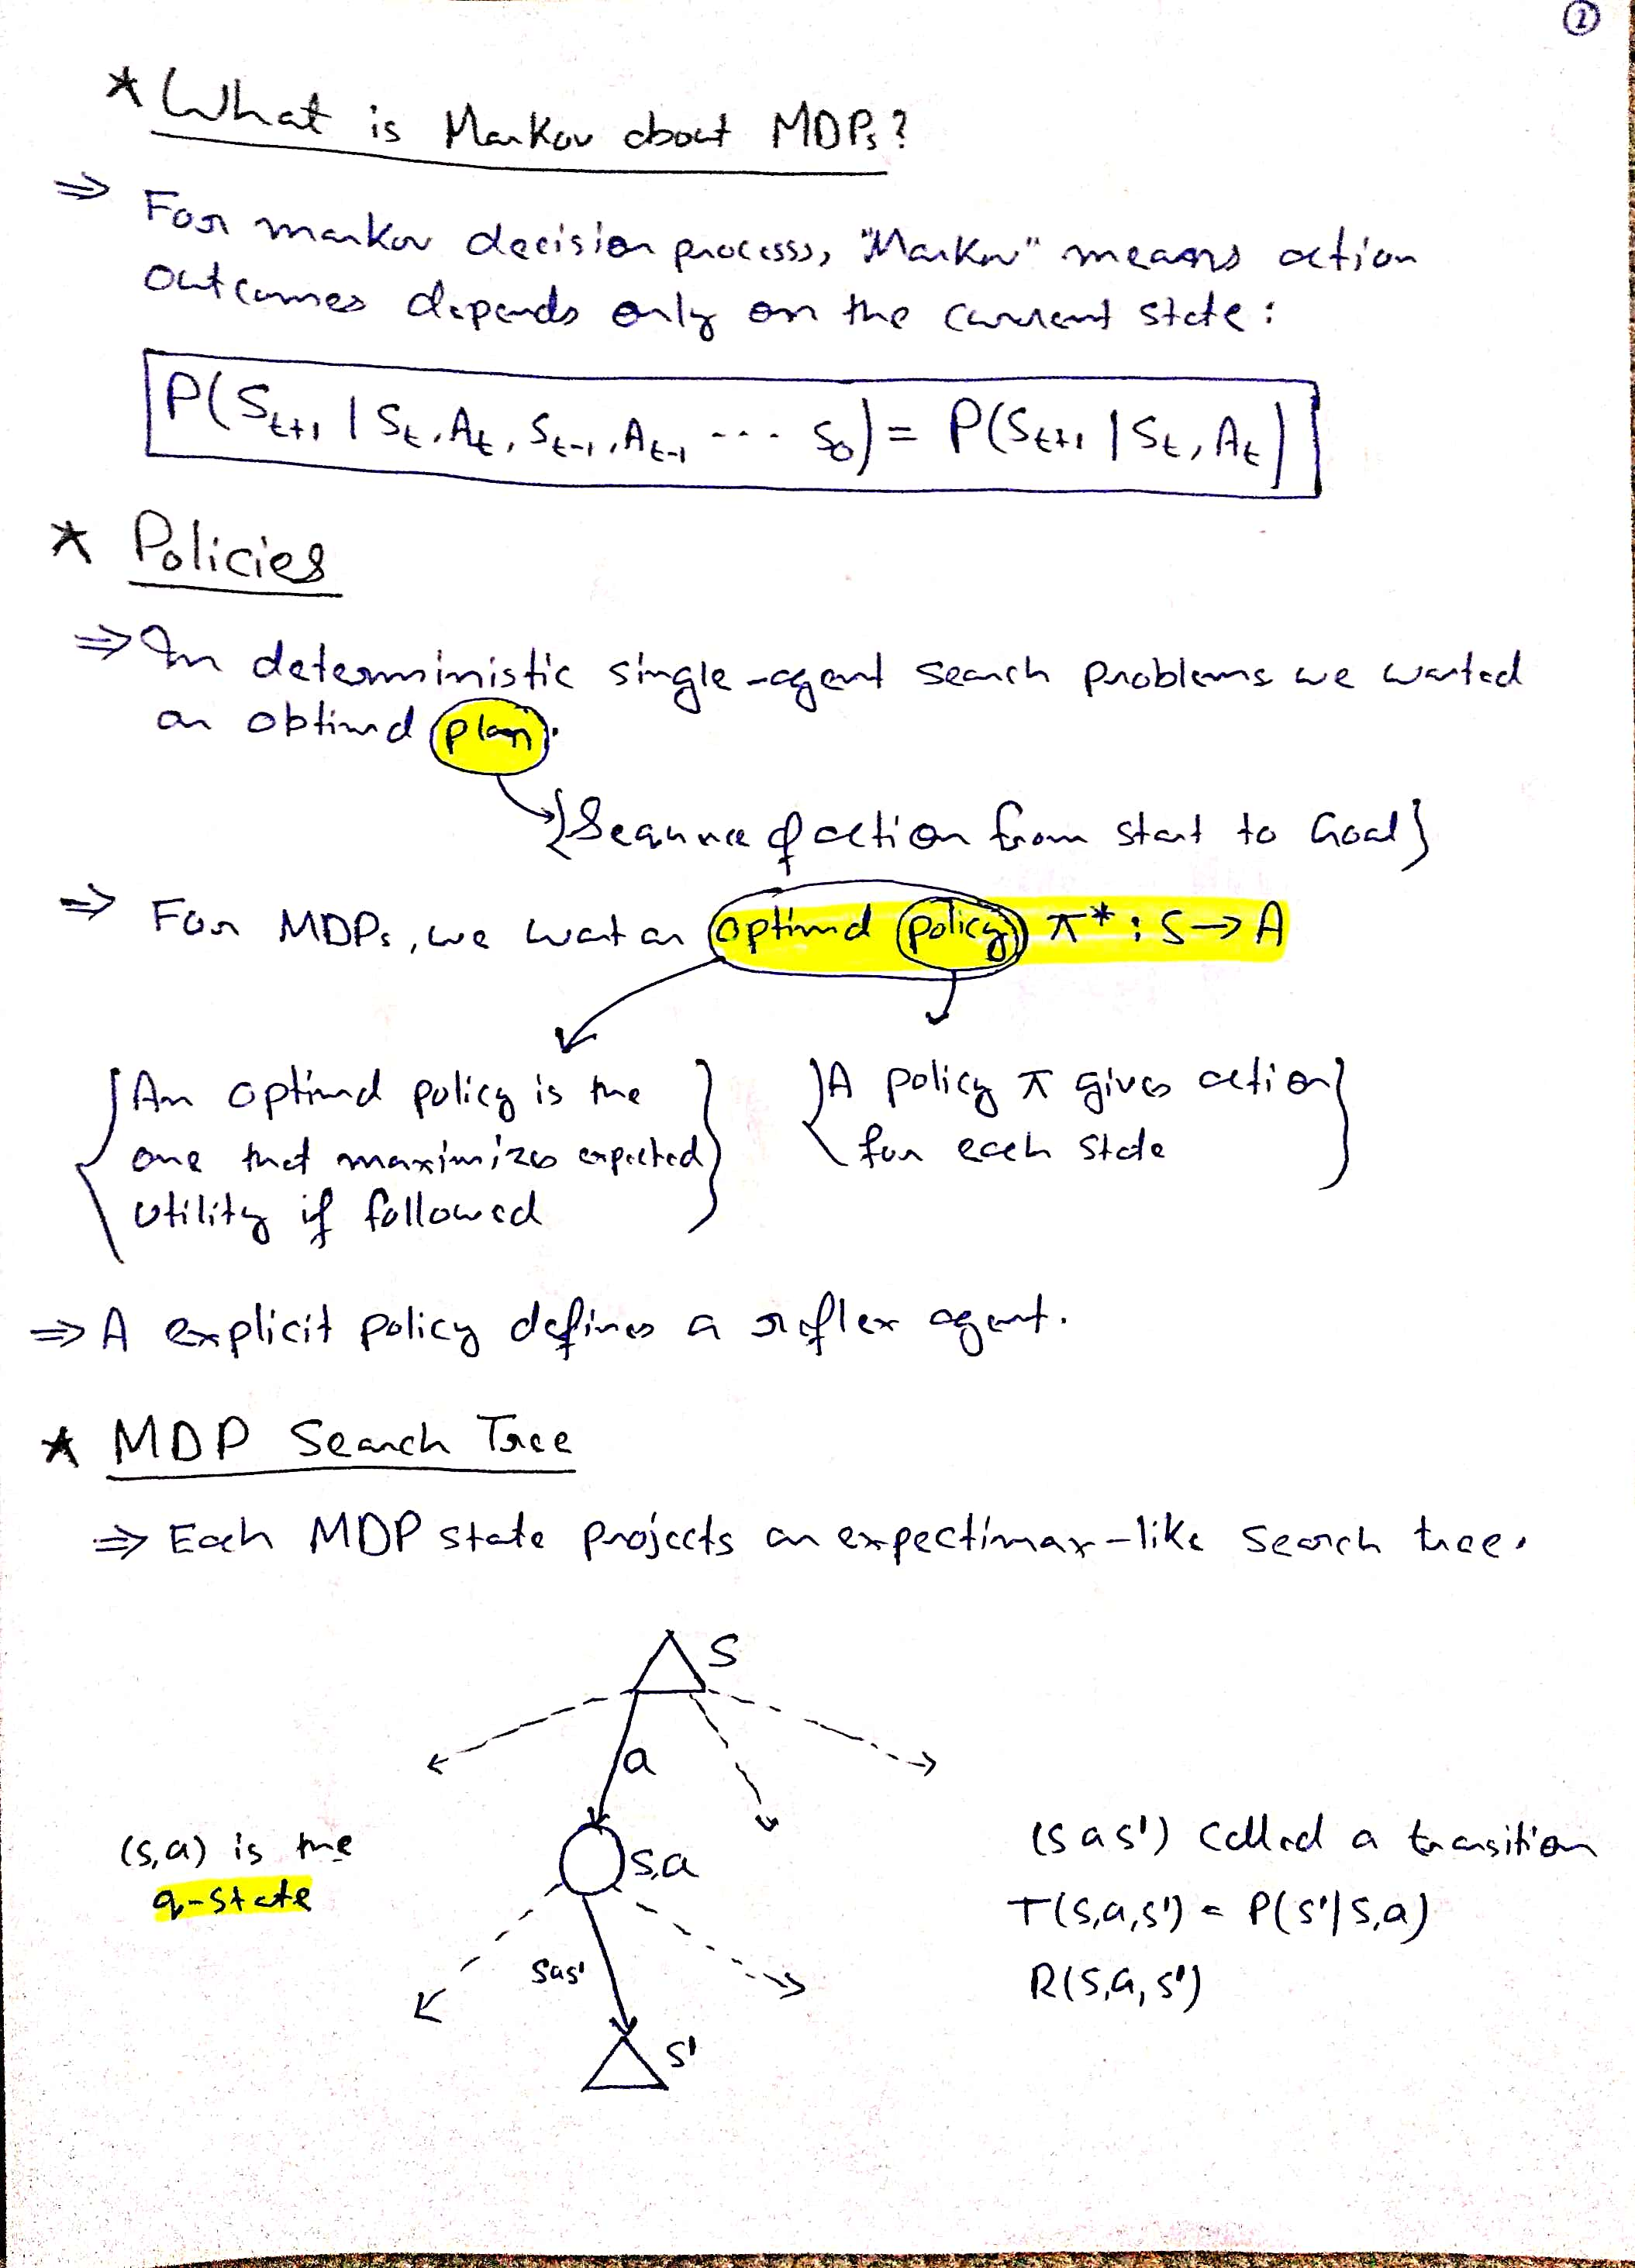 ②
* What is Markov about MDPs?
⇒ For markov decision process, "Markov" means action
outcomes depends only on the current state:
P(S_{t+1} | S_t, A_t, S_{t-1}, A_{t-1} --- S_0) = P(S_{t+1} | S_t, A_t)
* Policies
⇒ In deterministic single-agent search problems we wanted
an optimal plan.
{Sequence of action from start to Goal}
⇒ For MDPs, we want an optimal policy π* : S → A
{An optimal policy is the
one that maximizes expected
utility if followed}
{A policy π gives action
for each state}
⇒ A explicit policy defines a reflex agent.
* MDP Search Tree
⇒ Each MDP state projects an expectimax-like search tree.
S
a
(s,a) is the
q-state
s,a
(s a s') called a transition
T(s,a,s') = P(s'|s,a)
R(s,a,s')
sas'
s'